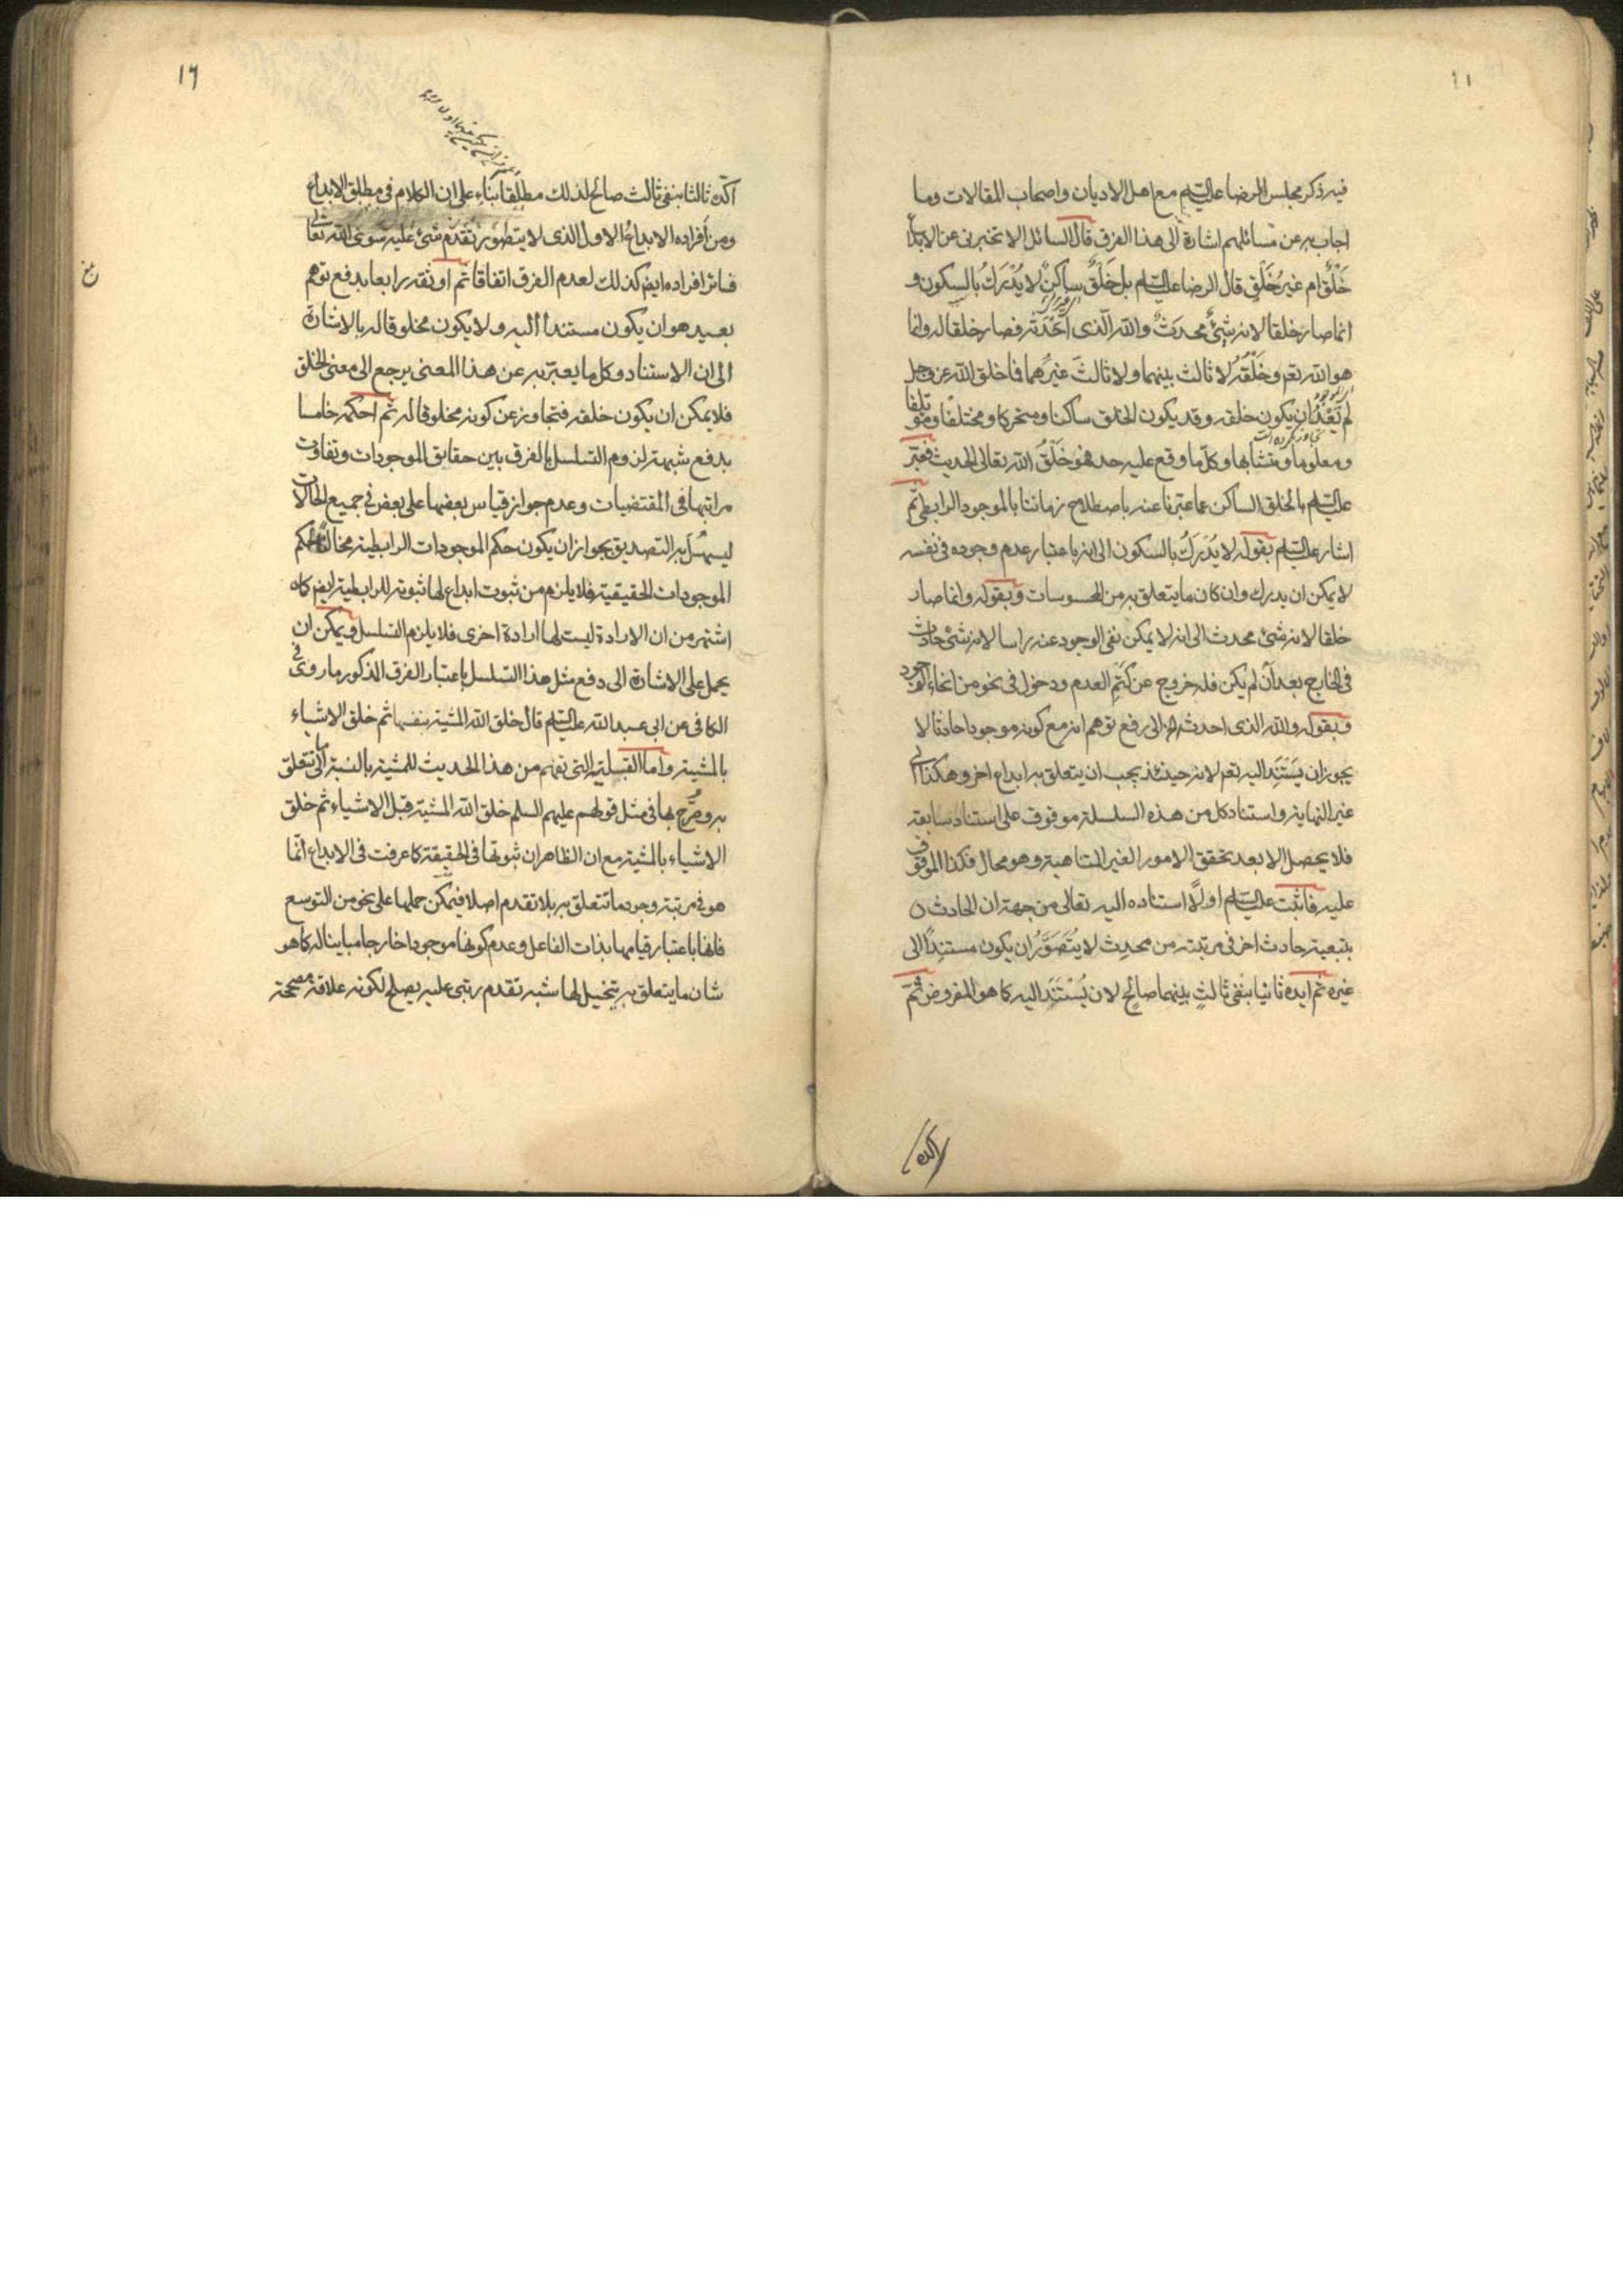 فيه ذكر مجلس الرضا عليه السلام مع اهل الاديان واصحاب المقالات وما
اجاب به عن مسائلهم اشارة الى هذا الفرق قال السائل الا تخبرنى عن الابداع
خَلْقٌ ام غيرُ خَلْقٍ قال الرضا عليه السلم بل خَلْقٌ ساكنٌ لا يُدْرَكُ بالسكون و
انما صار خلقا لانه شئٌ محدَثٌ والله الّذى اَحْدَثَه فصار خلقا له وانما
هو الله تعم وخَلْقُه لا ثالث بينهما ولا ثالثَ غيرَهما فما خلق الله عز وجل
لم يَعْدُ ان يكون خلقه وقد يكون الخلق ساكنا ومتحركا ومختلفا ومؤتلفا
ومعلوما ومتشابها وكلّ ما وقع عليه حد فهو خَلْقُ الله تعالى الحديث فعبّر
عليه السلم بالخلق الساكن عما عبّرنا عنه باصطلاح زماننا بالموجود الرابطى ثم
اشار عليه السلم بقوله لا يُدْرَكُ بالسكون الى انه باعتبار عدم وجوده فى نفسه
لا يمكن ان يدرك وان كان ما يتعلق به من المحسوسات وبقوله وانما صار
خلقا لانه شئ محدث الى انه لا يمكن نفى الوجود عنه راسا لانه شئ حادث
فى الخارج بعد اَن لم يكن فله خروج عن كَتَمِ العدم ودخول فى نحو من انحاء الوجود
وبقوله والله الذى احدثه الخ الى رفع توهم انه مع كونه موجودا حادثا لا
يجوز ان يَسْتَنِد اليه تعم لانه حينئذ يجب ان يتعلق به ابداع اخر وهكذا الى
غير النهاية واستناد كل من هذه السلسلة موقوف على استناد سابقه
فلا يحصل الا بعد تحقق الامور الغير المتناهية وهو محال فكذا الموقوف
عليه فاثبت عليه السلم اولًا استناده اليه تعالى من جهة ان الحادث
بتبعية حادث اخر فى مرتبته من محدِث لا يُتَصَوَّرُ ان يكون مستنِدًا الى
غيره ثم ايده ثانيا بنفى ثالثٍ بينهما صالحٍ لان يُسْتَنَد اليه كما هو المفروض ثمّ
اكّده
١٦
اكّده ثالثا بنفى ثالث صالح لذلك مطلقا بناء على ان الكلام فى مطلق الابداع
ومن اَفراده الابداعُ الاول الذى لا يتصور تقدم شئ عليه سوى الله تعالى
فسائر افراده ايضم كذلك لعدم الفرق اتفاقا ثم اوثقه رابعا بدفع توهم
بعيد هو ان يكون مستندا اليه ولا يكون مخلوقا له بالاشارة
الى ان الاستناد وكل ما يعبّر به عن هذا المعنى يرجع الى معنى الخلق
فلا يمكن ان يكون خلقه فتجاوز عن كونه مخلوقا له ثم احكمه خامسا
بدفع شبهة لزوم التسلسل بالفرق بين حقايق الموجودات وتفاوت
مراتبها فى المقتضيات وعدم جواز قياس بعضها على بعض فى جميع الحالات
ليسهُل به التصديق بجواز ان يكون حكم الموجودات الرابطية مخالفا لحكم
الموجودات الحقيقية فلا يلزم من ثبوت ابداع لها ثبوته للرابطية ايضم كما
اشتهر من ان الارادة ليست لها ارادة اخرى فلا يلزم التسلسل ويمكن ان
يحمل على الاشارة الى دفع مثل هذا التسلسل باعتبار الفرق المذكور ما روى فى
الكافى عن ابى عبد الله عليه السلم قال خلق الله المشية بنفسها ثم خلق الاشياء
بالمشية واما القبلية التى تفهم من هذا الحديث للمشية بالنسبة الى ما تتعلق
به وصُرّح بها فى مثل قولهم عليهم السلم خلق الله المشية قبل الاشياء ثم خلق
الاشياء بالمشية مع ان الظاهر ان ثبوتها فى الحقيقة كما عرفت فى الابداع انما
هو فى مرتبة وجود ما تتعلق به بلا تقدم اصلا فيمكن حملها على نحو من التوسع
فانها باعتبار قيامها بذات الفاعل وعدم كونها موجودا خارجا مباينا له كما هو
شان ما يتعلق به يتخيل لها شبه تقدم رتبى عليه يصلح لكونه علاقة مصححة